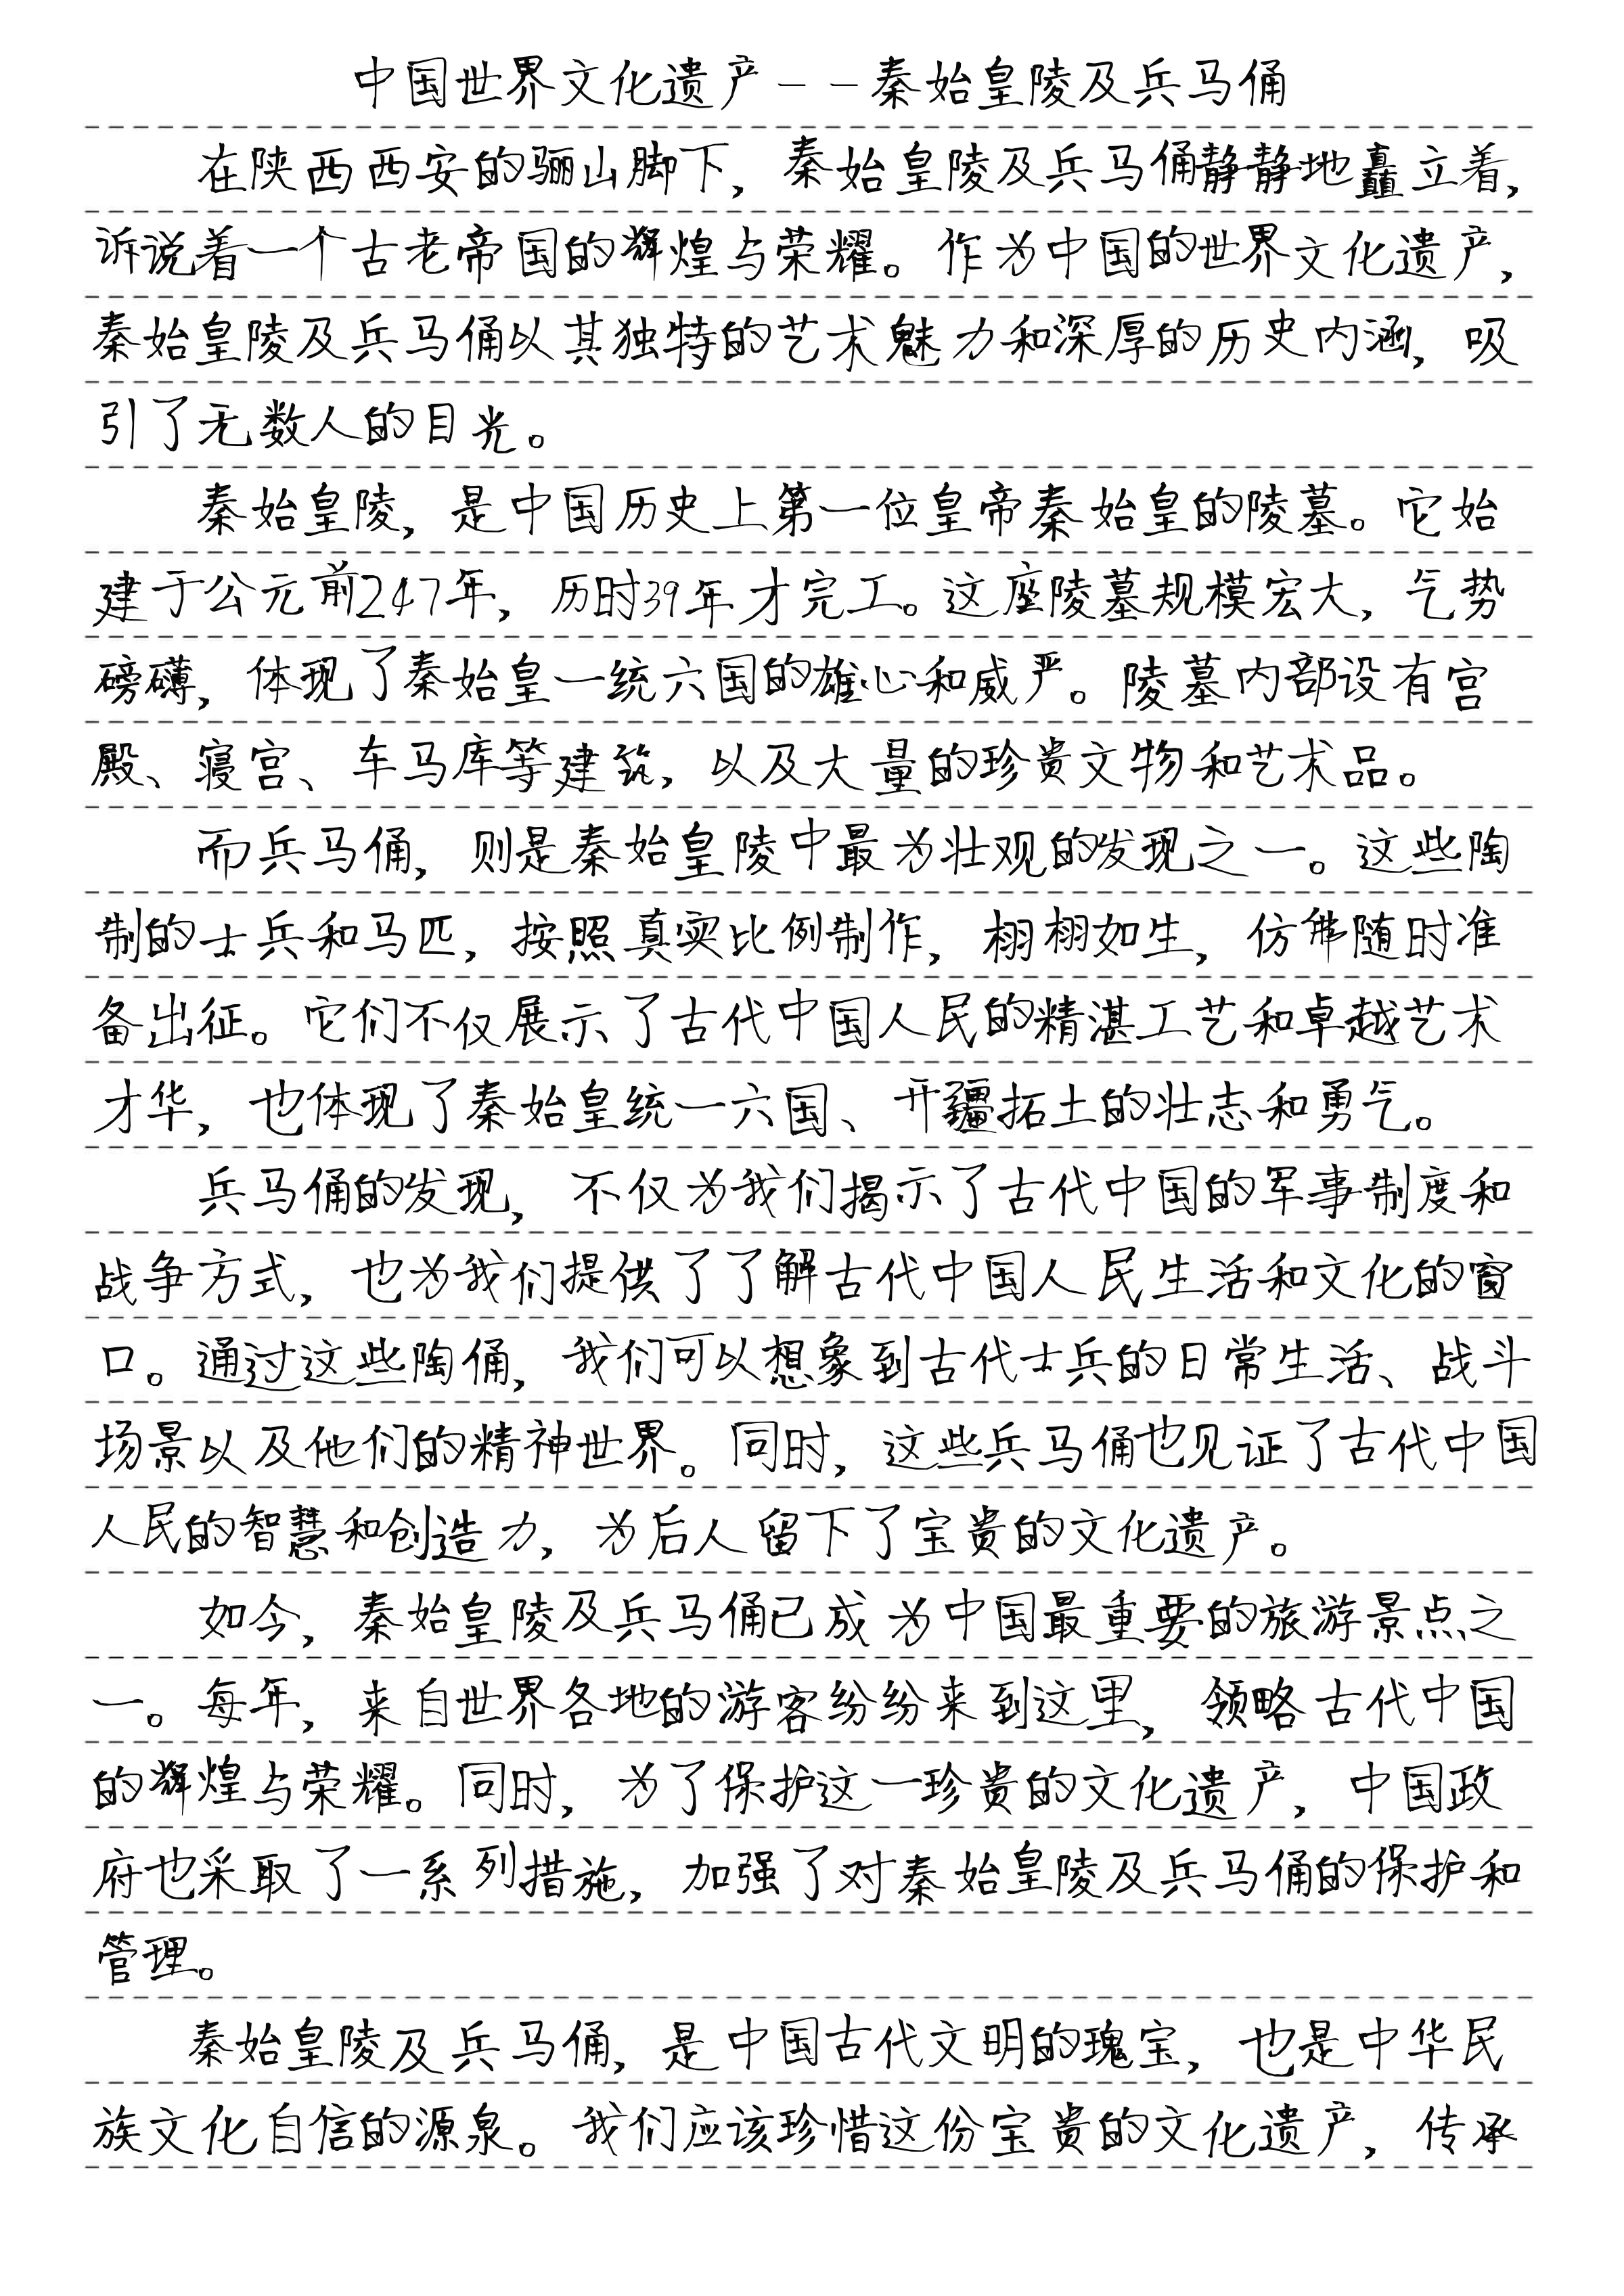 中国世界文化遗产——秦始皇陵及兵马俑
在陕西西安的骊山脚下，秦始皇陵及兵马俑静静地矗立着，
诉说着一个古老帝国的辉煌与荣耀。作为中国的世界文化遗产，
秦始皇陵及兵马俑以其独特的艺术魅力和深厚的历史内涵，吸
引了无数人的目光。
秦始皇陵，是中国历史上第一位皇帝秦始皇的陵墓。它始
建于公元前247年，历时39年才完工。这座陵墓规模宏大，气势
磅礴，体现了秦始皇一统六国的雄心和威严。陵墓内部设有宫
殿、寝宫、车马库等建筑，以及大量的珍贵文物和艺术品。
而兵马俑，则是秦始皇陵中最为壮观的发现之一。这些陶
制的士兵和马匹，按照真实比例制作，栩栩如生，仿佛随时准
备出征。它们不仅展示了古代中国人民的精湛工艺和卓越艺术
才华，也体现了秦始皇统一六国、开疆拓土的壮志和勇气。
兵马俑的发现，不仅为我们揭示了古代中国的军事制度和
战争方式，也为我们提供了了解古代中国人民生活和文化的窗
口。通过这些陶俑，我们可以想象到古代士兵的日常生活、战斗
场景以及他们的精神世界。同时，这些兵马俑也见证了古代中国
人民的智慧和创造力，为后人留下了宝贵的文化遗产。
如今，秦始皇陵及兵马俑已成为中国最重要的旅游景点之
一。每年，来自世界各地的游客纷纷来到这里，领略古代中国
的辉煌与荣耀。同时，为了保护这一珍贵的文化遗产，中国政
府也采取了一系列措施，加强了对秦始皇陵及兵马俑的保护和
管理。
秦始皇陵及兵马俑，是中国古代文明的瑰宝，也是中华民
族文化自信的源泉。我们应该珍惜这份宝贵的文化遗产，传承